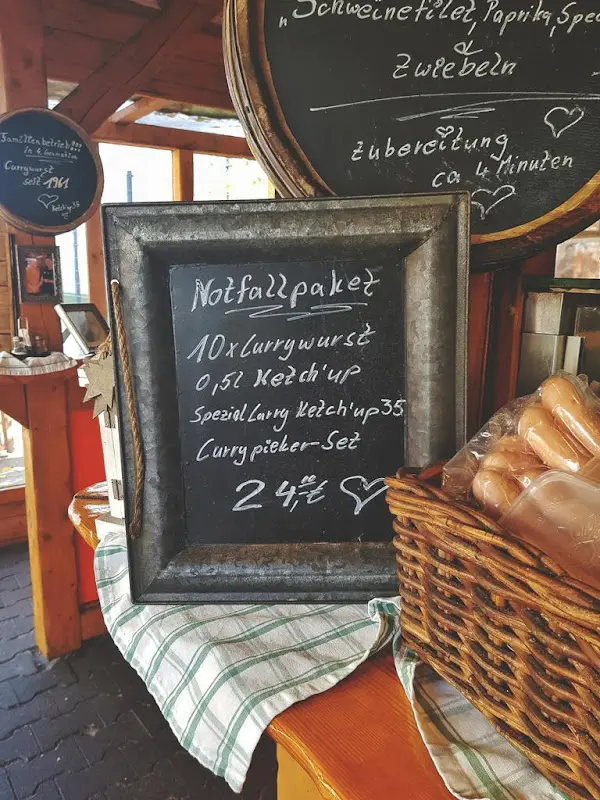 „Schweinefilet, Paprika, Spe
Zwiebeln
Zubereitung
ca 4 Minuten
Familienbetrieb!!!
in 4. Generation
Currywurst
seit 1961
Ketch'up 35
Notfallpaket
10x Currywurst
0,5l Ketch'up
Spezial Curry Ketch'up 35
Currypieker-Set
24,00 €